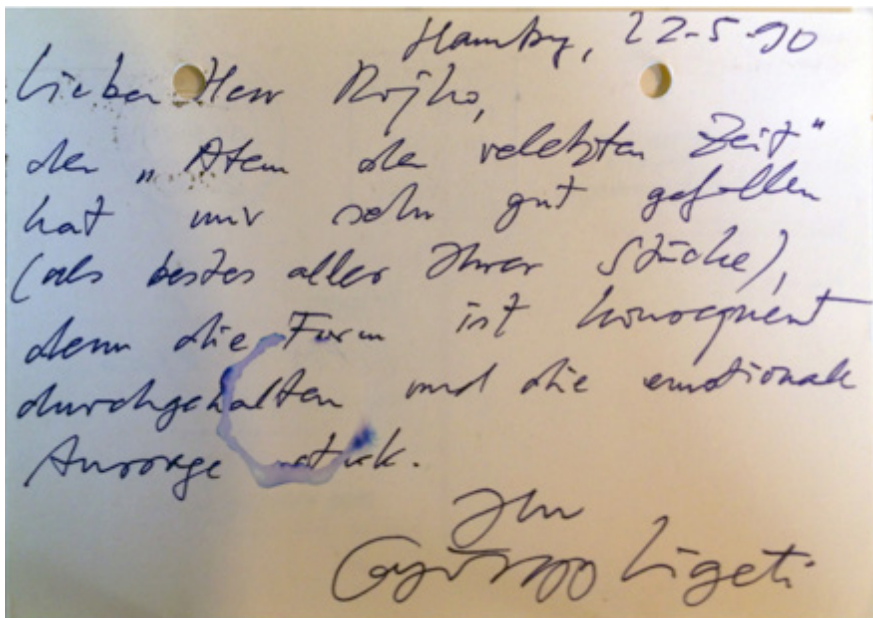 Hamburg, 22-5-90
Lieber Herr
der „Atem der verletzten Zeit“
hat mir sehr gut gefallen
(als bestes aller Ihrer Stücke),
denn die Form ist konsequent
durchgehalten und die emotionale
Aussage stark.
Ihr
György Ligeti